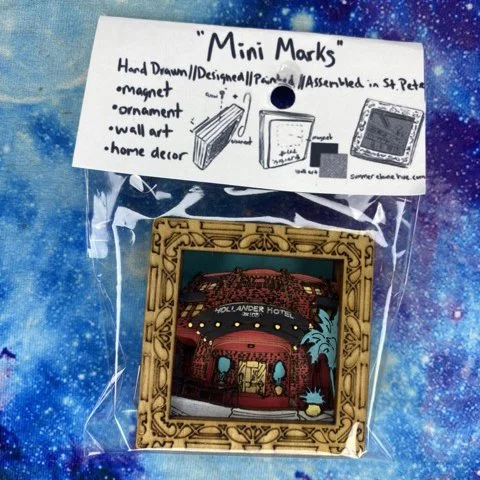 "Mini Marks"
Hand Drawn//Designed//Painted//Assembled in St. Pete
•magnet
•ornament
•wall art
•home decor
magnet
wall art
HOLLANDER HOTEL